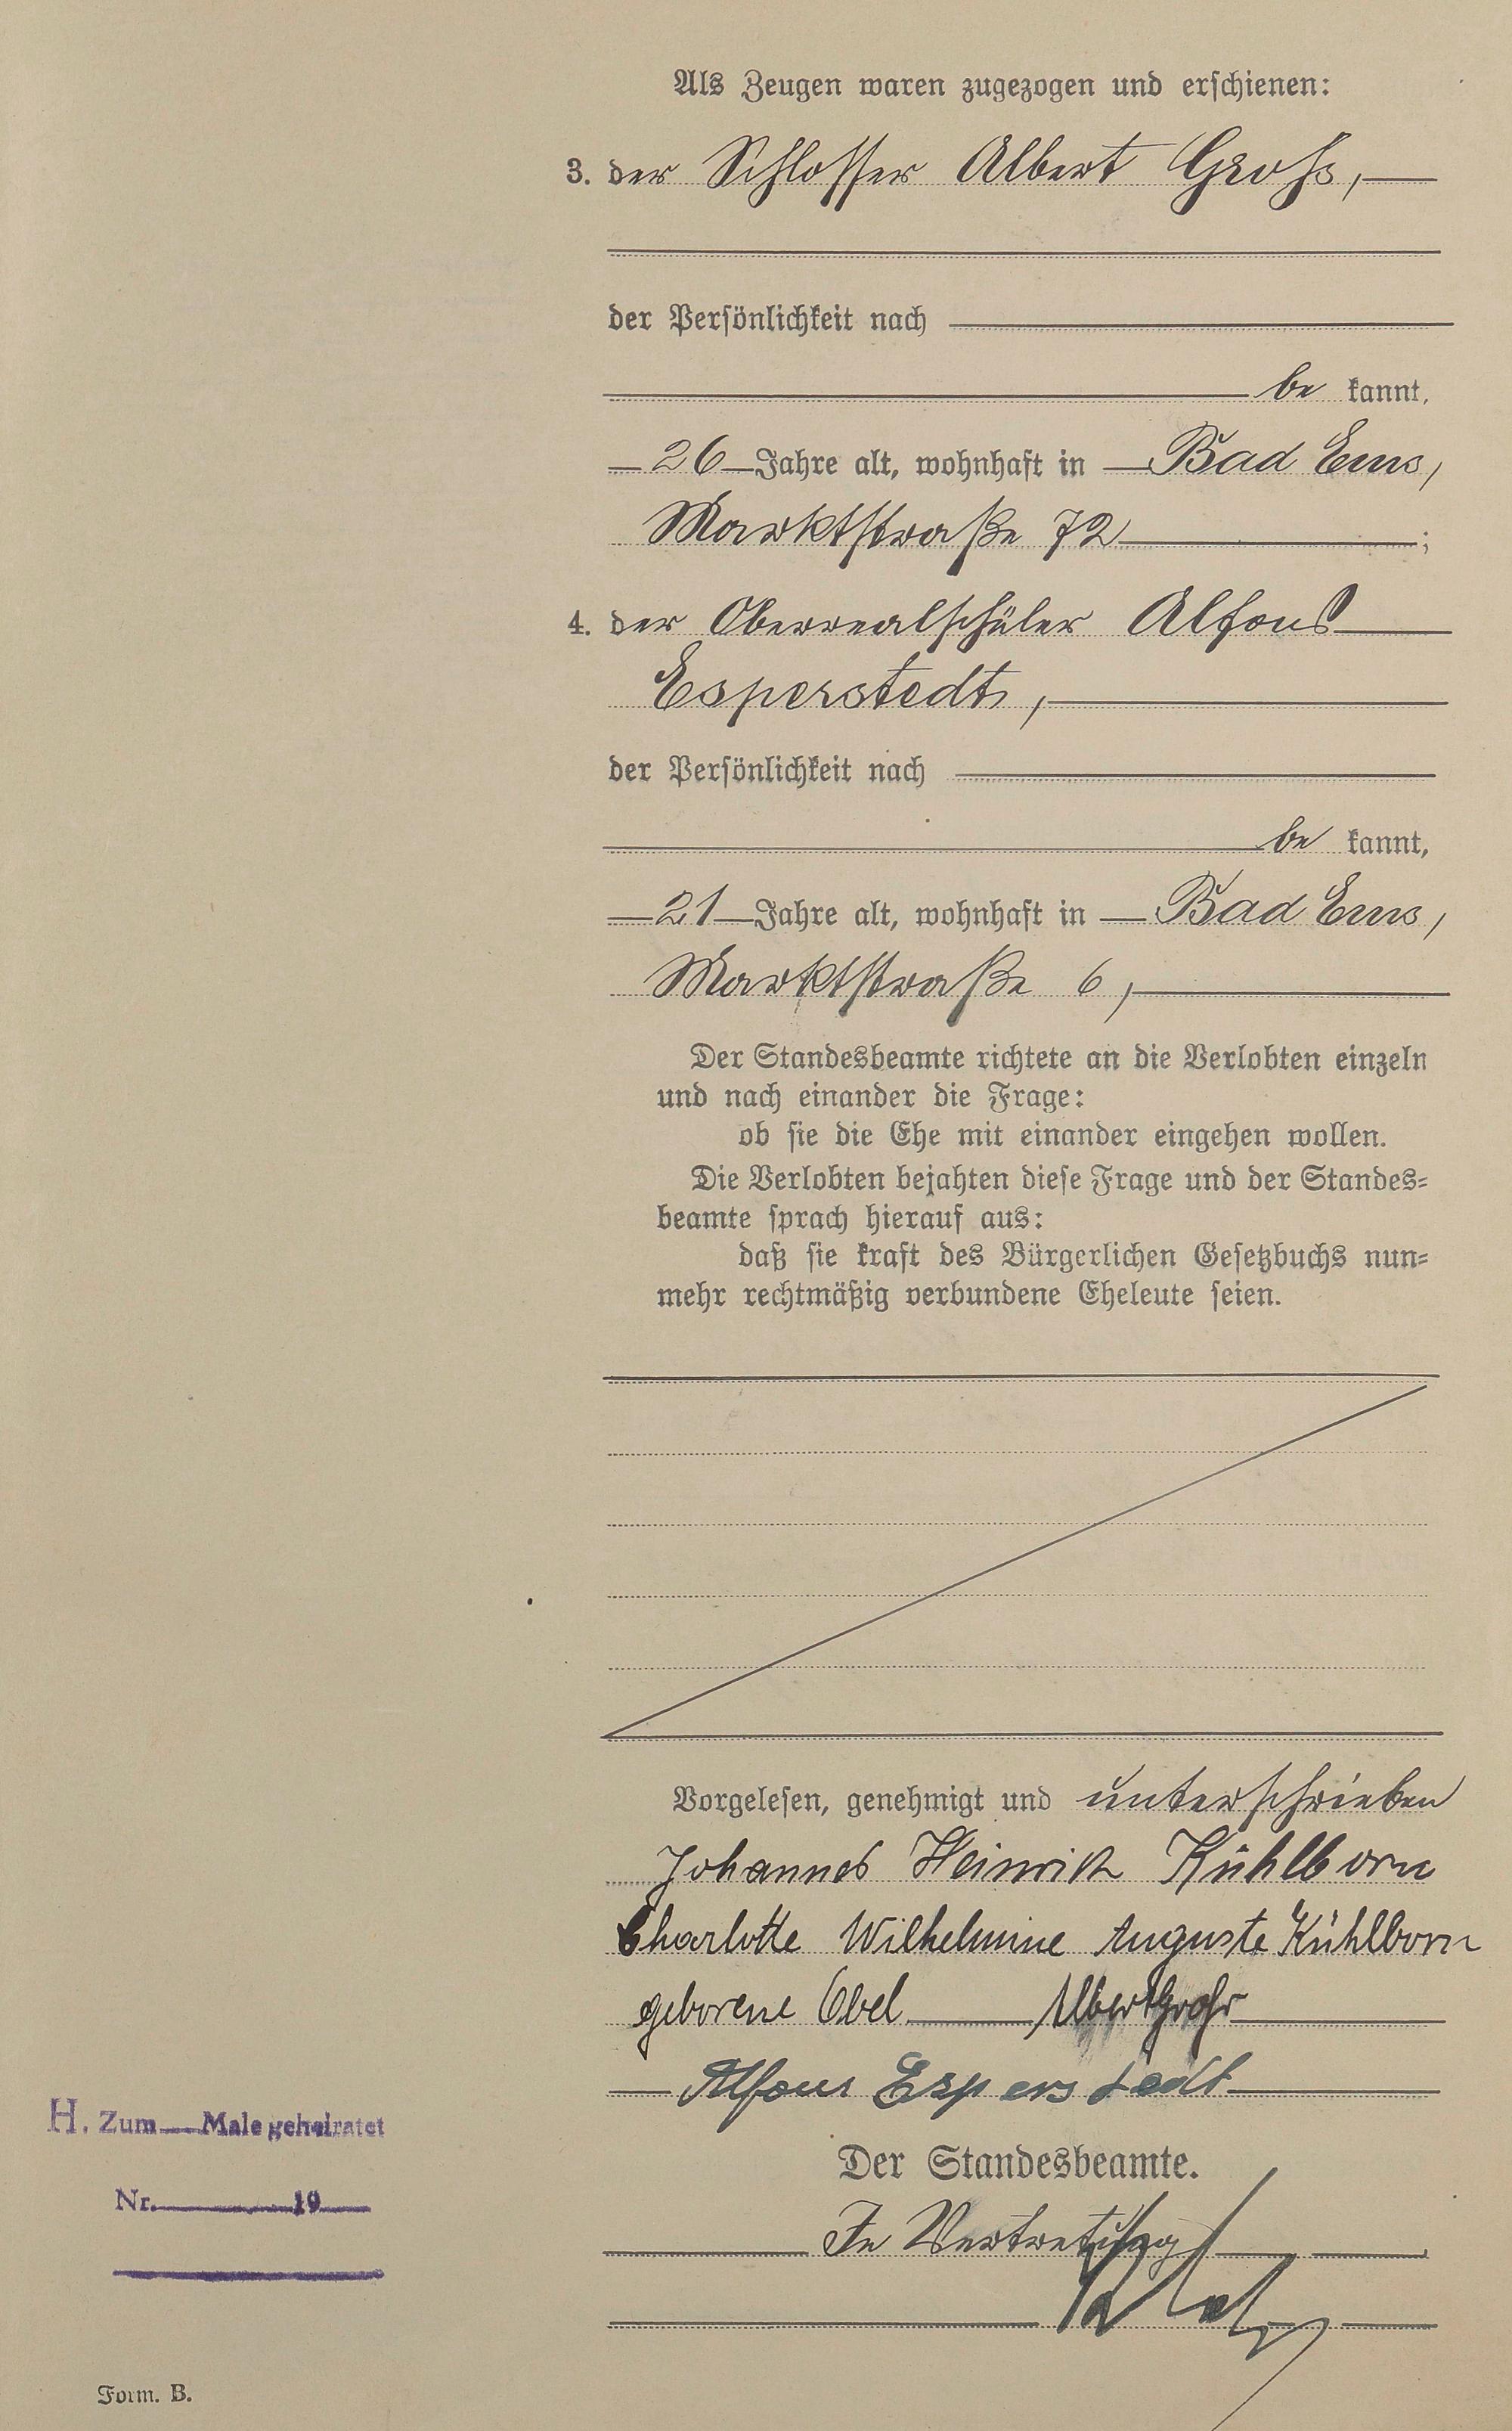 Als Zeugen waren zugezogen und erschienen:
3. der Schlosser Albert Groß,
der Persönlichkeit nach
be kannt,
26 Jahre alt, wohnhaft in Bad Ems,
Marktstraße 72 ;
4. der Oberrealschüler Alfons
Esperstedt,
der Persönlichkeit nach
be kannt,
21 Jahre alt, wohnhaft in Bad Ems,
Marktstraße 6,
Der Standesbeamte richtete an die Verlobten einzeln
und nach einander die Frage:
ob sie die Ehe mit einander eingehen wollen.
Die Verlobten bejahten diese Frage und der Standes-
beamte sprach hierauf aus:
daß sie kraft des Bürgerlichen Gesetzbuchs nun-
mehr rechtmäßig verbundene Eheleute seien.
Vorgelesen, genehmigt und unterschrieben
Johannes Heinrich Kühlborn
Charlotte Wilhelmine Auguste Kühlborn
geborene Obel Albert Groß
Alfons Esperstedt
Der Standesbeamte.
In Vertretung
H. Zum Male geheiratet
Nr. 19
Form. B.